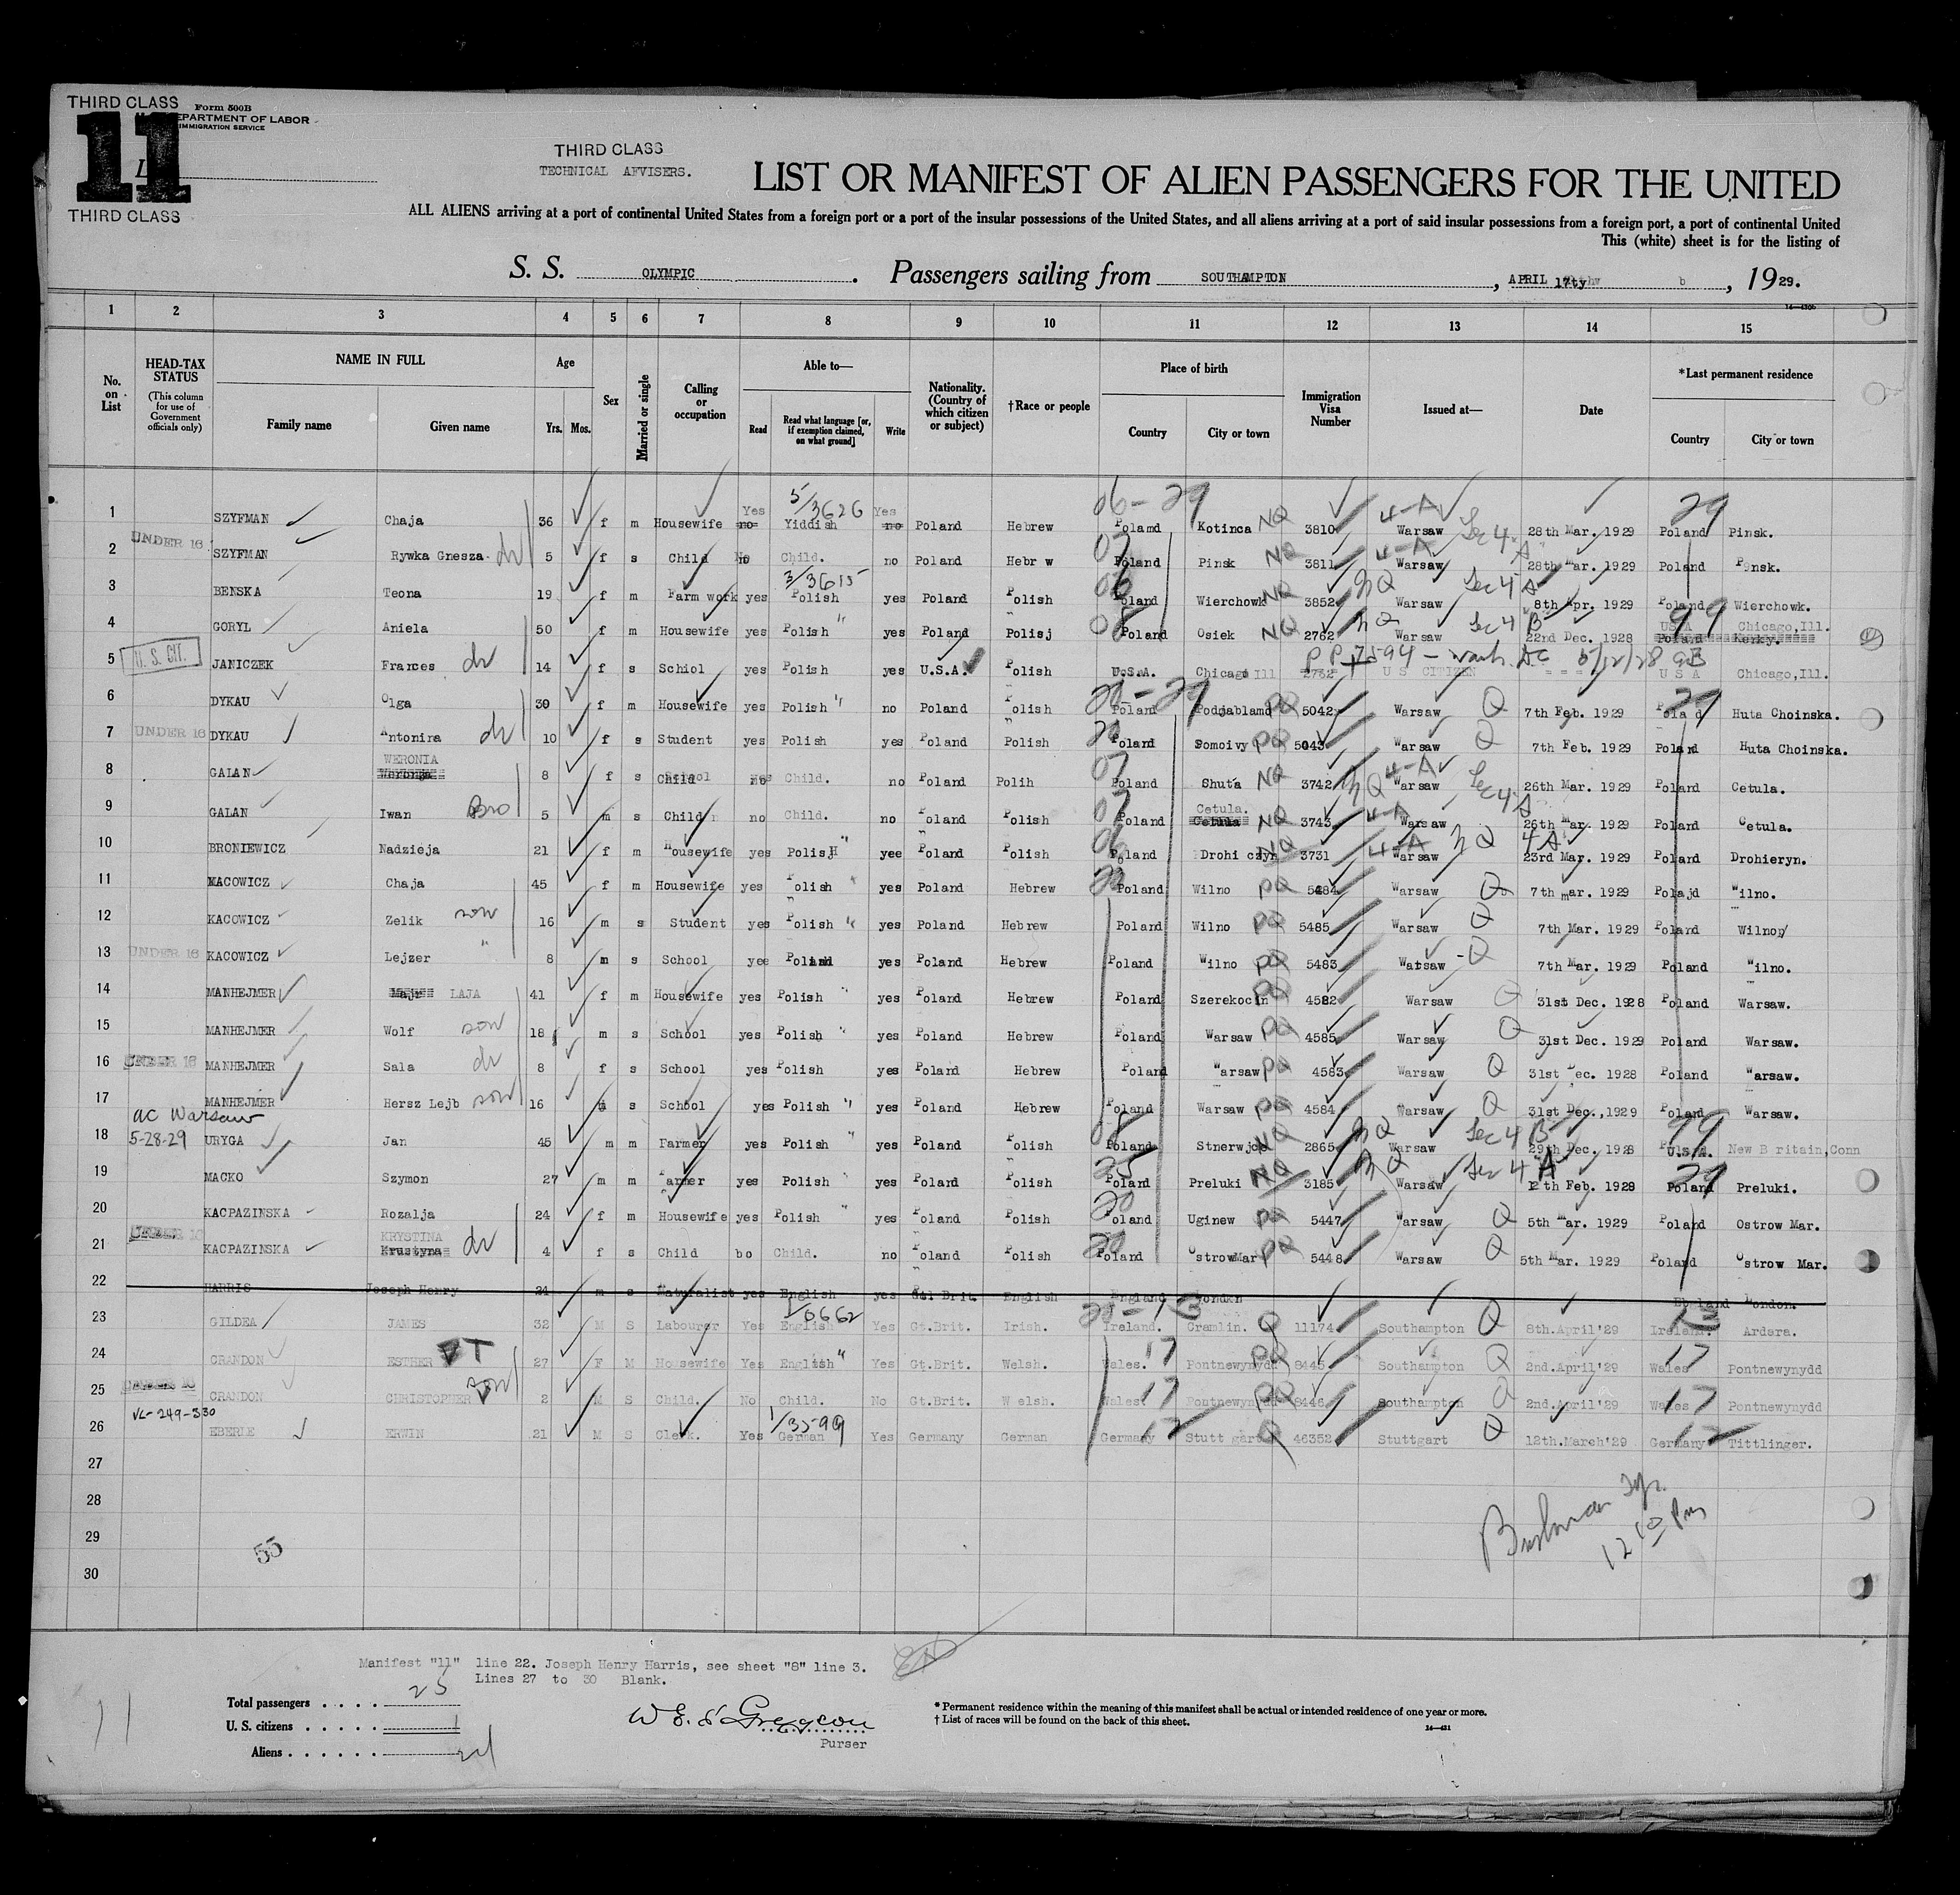 THIRD CLASS Form 500B
DEPARTMENT OF LABOR
IMMIGRATION SERVICE
11
THIRD CLASS
THIRD CLASS
TECHNICAL AFVISERS.
LIST OR MANIFEST OF ALIEN PASSENGERS FOR THE UNITED
ALL ALIENS arriving at a port of continental United States from a foreign port or a port of the insular possessions of the United States, and all aliens arriving at a port of said insular possessions from a foreign port, a port of continental United
This (white) sheet is for the listing of
S. S. OLYMPIC. Passengers sailing from SOUTHAMPTON, APRIL 17th, 1929.
1 2 3 4 5 6 7 8 9 10 11 12 13 14 15
No. on List
HEAD-TAX STATUS (This column for use of Government officials only)
NAME IN FULL Family name Given name
Age Yrs. Mos.
Sex
Married or single
Calling or occupation
Able to— Read Read what language [or, if exemption claimed, on what ground] Write
Nationality. (Country of which citizen or subject)
†Race or people
Place of birth Country City or town
Immigration Visa Number
Issued at—
Date
*Last permanent residence Country City or town
1 SZYFMAN Chaja 36 f m Housewife no Yes Yiddish 5/3626 no Yes Poland Hebrew Polamd Kotinca NQ 3810 Warsaw 4-A 28th Mar. 1929 Poland Pinsk.
2 UNDER 16 SZYFMAN Rywka Gnesza 5 f s Child No Child. no Poland Hebr w Poland Pinsk NQ 3811 4-A Warsaw Sec 4 "A" 28th Mar. 1929 Poland P nsk.
3 BENSKA Teona 19 f m Farm work yes Polish 3/3615 yes Poland Polish Poland Wierchowk NQ 3852 Warsaw Sec 4 A 8th Apr. 1929 Poland Wierchowk.
4 GORYL Aniela 50 f m Housewife yes Polish " yes Poland Polisj Poland Osiek NQ 2762 Warsaw Sec 4 B 22nd Dec. 1928 Poland Kerky. USA Chicago,Ill.
5 U. S. CIT. JANICZEK Frances 14 f s Schiol yes Polish yes U.S.A. Polish U.S.A. Chicago Ill 2762 U S CITIZEN U S A Chicago,Ill.
6 DYKAU Olga 30 f m Housewife yes Polish " no Poland Polish Poland Podjabland PQ 5042 Warsaw Q 7th Feb. 1929 Pola d Huta Choinska.
7 UNDER 16 DYKAU Antonira 10 f s Student yes Polish yes Poland Polish Poland Somoivy PQ 5043 Warsaw Q 7th Feb. 1929 Poland Huta Choinska.
8 GALAN WERONIA 8 f s Child no Child. no Poland Polih Poland Shuta NQ 3742 4-A Warsaw Sec 4 26th Mar. 1929 Poland Cetula.
9 GALAN Iwan Bro 5 m s Child no Child. no Poland Polish Poland Cetula. NQ 3743 4-A Warsaw 26th Mar. 1929 Poland Cetula.
10 BRONIEWICZ Nadzieja 21 f m Housewife yes PolisH " yee Poland Polish Poland Drohi czyn NQ 3731 4-A Warsaw 4 A 23rd Mar. 1929 Poland Drohieryn.
11 KACOWICZ Chaja 45 f m Housewife yes Polish yes Poland Hebrew Poland Wilno PQ 5484 Warsaw Q 7th mar. 1929 Polajd Wilno.
12 KACOWICZ Zelik son 16 m s Student yes Polish " yes Poland Hebrew Poland Wilno PQ 5485 Warsaw Q 7th Mar. 1929 Poland Wilno
13 UNDER 16 KACOWICZ Lejzer " 8 m s School yes yes Poland Hebrew Poland Wilno PQ 5483 Watsaw Q 7th Mar. 1929 Poland Wilno.
14 MANHEJMER LAJA 41 f m Housewife yes Polish " yes Poland Hebrew Poland Szerekocin PQ 4582 Warsaw Q 31st Dec. 1928 Poland Warsaw.
15 MANHEJMER Wolf son 18 m s School yes Polish " yes Poland Hebrew Poland Warsaw PQ 4585 Warsaw Q 31st Dec. 1929 Poland Warsaw.
16 UNDER 16 MANHEJMER Sala 8 f s School yes Polish yes Poland Hebrew Poland Warsaw PQ 4583 Warsaw Q 31st Dec. 1928 Poland Warsaw.
17 MANHEJMER Hersz Lejb son 16 m s School yes Polish " yes Poland Hebrew Poland Warsaw PQ 4584 Warsaw Q 31st Dec.,1929 Poland Warsaw.
QC Warsaw
18 5-28-29 URYGA Jan 45 m m Farmer yes Polish " yes Poland Polish Poland Stnerwjcd NQ 2865 Warsaw Sec 4 B 29th Dec. 1928 U.S.A. New B ritain,Conn
19 MACKO Szymon 27 m m Farmer yes Polish " yes Poland Polish Poland Preluki NQ 3185 Warsaw Sec 4 "A" 12th Feb. 1928 Poland Preluki.
20 KACPAZINSKA Rozalja 24 f m Housewife yes Polish " yes Poland Polish Poland Uginew PQ 5447 Warsaw Q 5th Mar. 1929 Poland Ostrow Mar.
21 UNDER 16 KACPAZINSKA Krustyna KRYSTINA 4 f s Child bo Child. no Poland Polish Poland OstrowMar PQ 5448 Warsaw Q 5th Mar. 1929 Poland Ostrow Mar.
22 HARRIS Joseph Henry 24 m s Naturalist yes English yes Gt. Brit. English England London England London.
23 GILDEA JAMES 32 M S Labourer Yes English Yes Gt.Brit. Irish. Ireland. Cramlin. Q 11174 Southampton Q 8th.April'29 Ireland. Ardera.
24 CRANDON ESTHER 27 F M Housewife Yes English " Yes Gt.Brit. Welsh. Wales. 17 Pontnewynydd PQ 8445 Southampton Q 2nd.April'29 Wales 17 Pontnewynydd
25 UNDER 16 CRANDON CHRISTOPHER son 2 M S Child. No Child. No Gt.Brit. Welsh. Wales. 17 Pontnewynydd PQ 8446 Southampton Q 2nd.April'29 Wales 17 Pontnewynydd
VL-249-330
26 EBERLE ERWIN 21 M S Clerk. Yes German Yes Germany German Germany 12 Stutt gart Q 46352 Stuttgart Q 12th.March'29 Germany 12 Tittlinger.
27
28
29
30
55
12 10 Pm
Manifest "11" line 22. Joseph Henry Harris, see sheet "8" line 3.
Lines 27 to 30 Blank.
11
Total passengers . . . . 25
U. S. citizens . . . . . 1
Aliens . . . . . . 24
Purser
* Permanent residence within the meaning of this manifest shall be actual or intended residence of one year or more.
† List of races will be found on the back of this sheet.
14—431